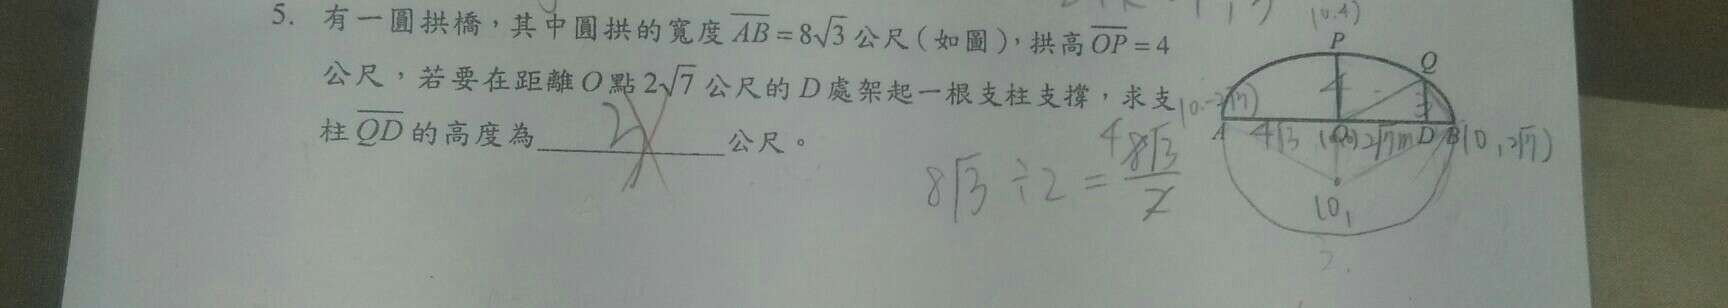 5. 有一圓拱橋，其中圓拱的寬度 AB = 8√3 公尺（如圖），拱高 OP = 4
公尺，若要在距離 O 點 2√7 公尺的 D 處架起一根支柱支撐，求支
柱 QD 的高度為 2 公尺。
8√3 ÷ 2 = 4 8√3 / 2
(0.4)
P
Q
4
A
4√3
2√7m
D
B
(0, 2√7)